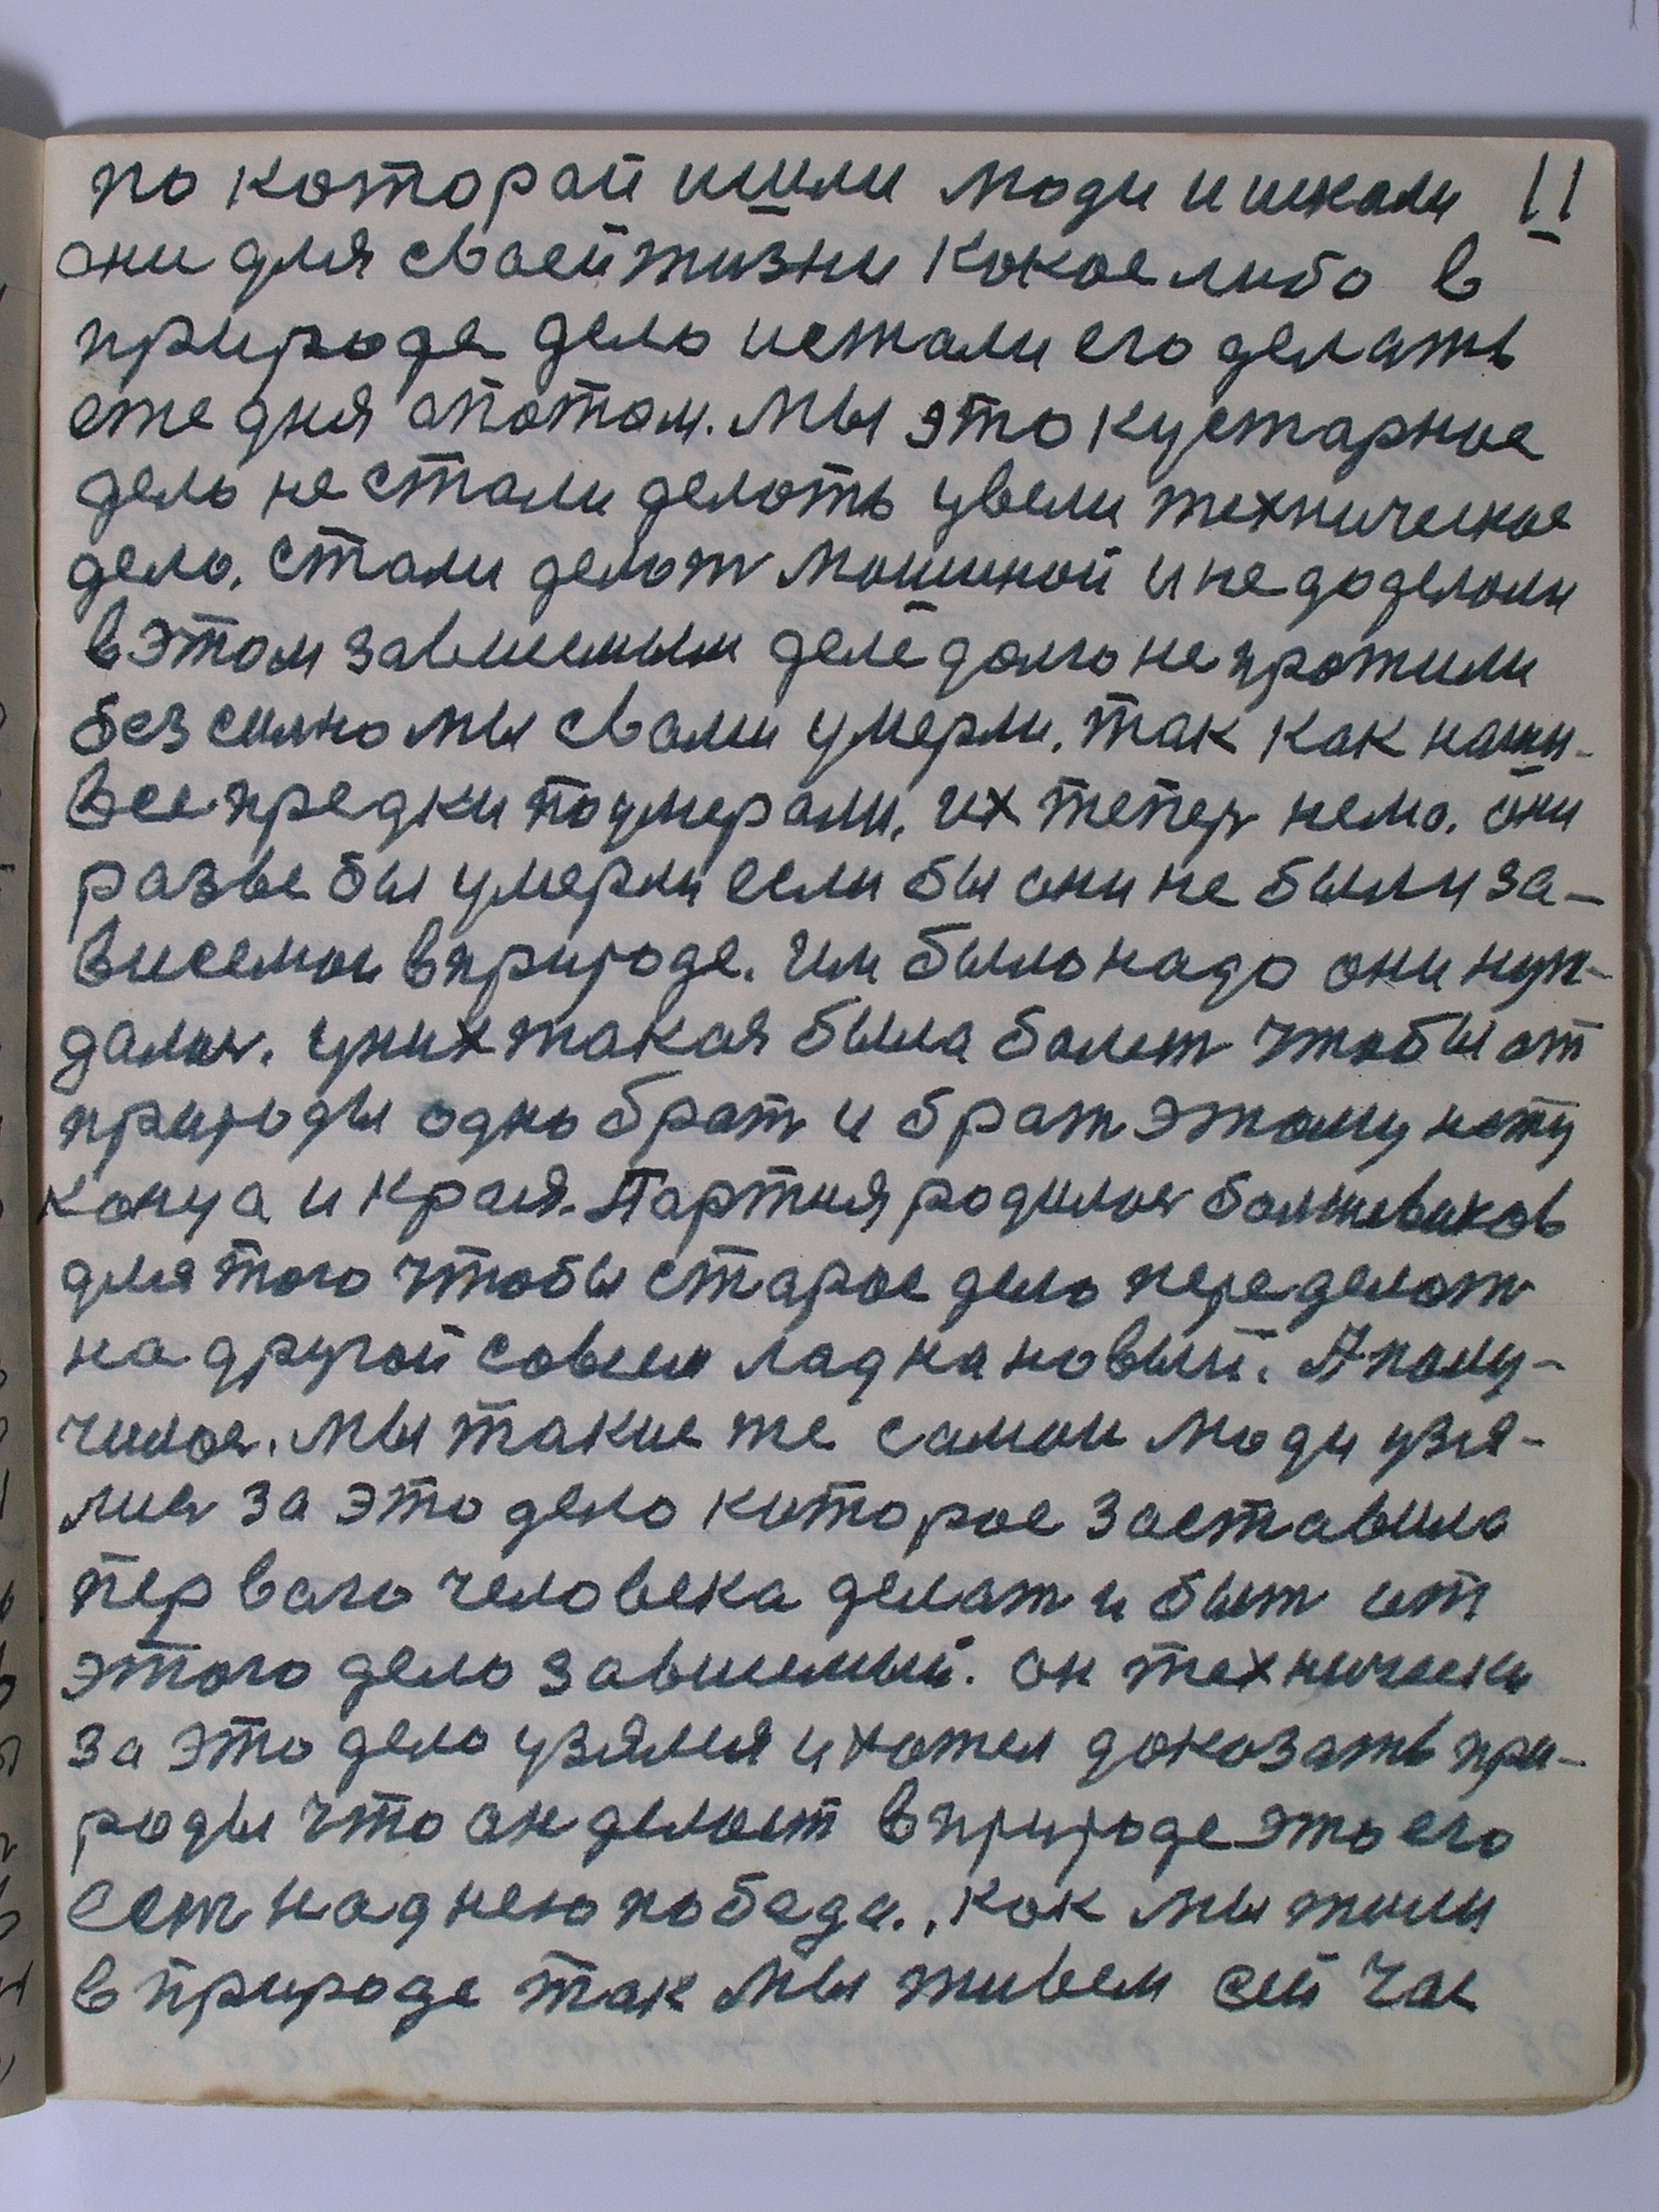 по которай ишли люди и искали 11
они для сваей жизни какое либо в
природе дело истали его делать
еже дня спотом. Мы это кустарное
дело не стали делоть увели техническое
дело. стали делат машиной и не доделали
в этом зависемым деле долго не прожили
без силно мы свами умерли. так как наши
все предки поумерали. их тепер нема. они
разве бы умерли если бы они не были за-
висемои в природе. Им было надо они нуж-
далис. у них такая была болет чтобы от
природы одно брат и брат этому нету
конца и края. Партия родилас болшевиков
для того чтобы старое дело переделат
на другой совсем лад на новый. А полу-
чилос. мы такие же самои люди узя-
лис за это дело которое заставило
перваго человека делат и быт от
этого дело зависемый. он технически
за это дело узялся и хотел доказать при-
роды что он делает в природе это его
ест над нею победа., как мы жили
в природе так мы живем сей час